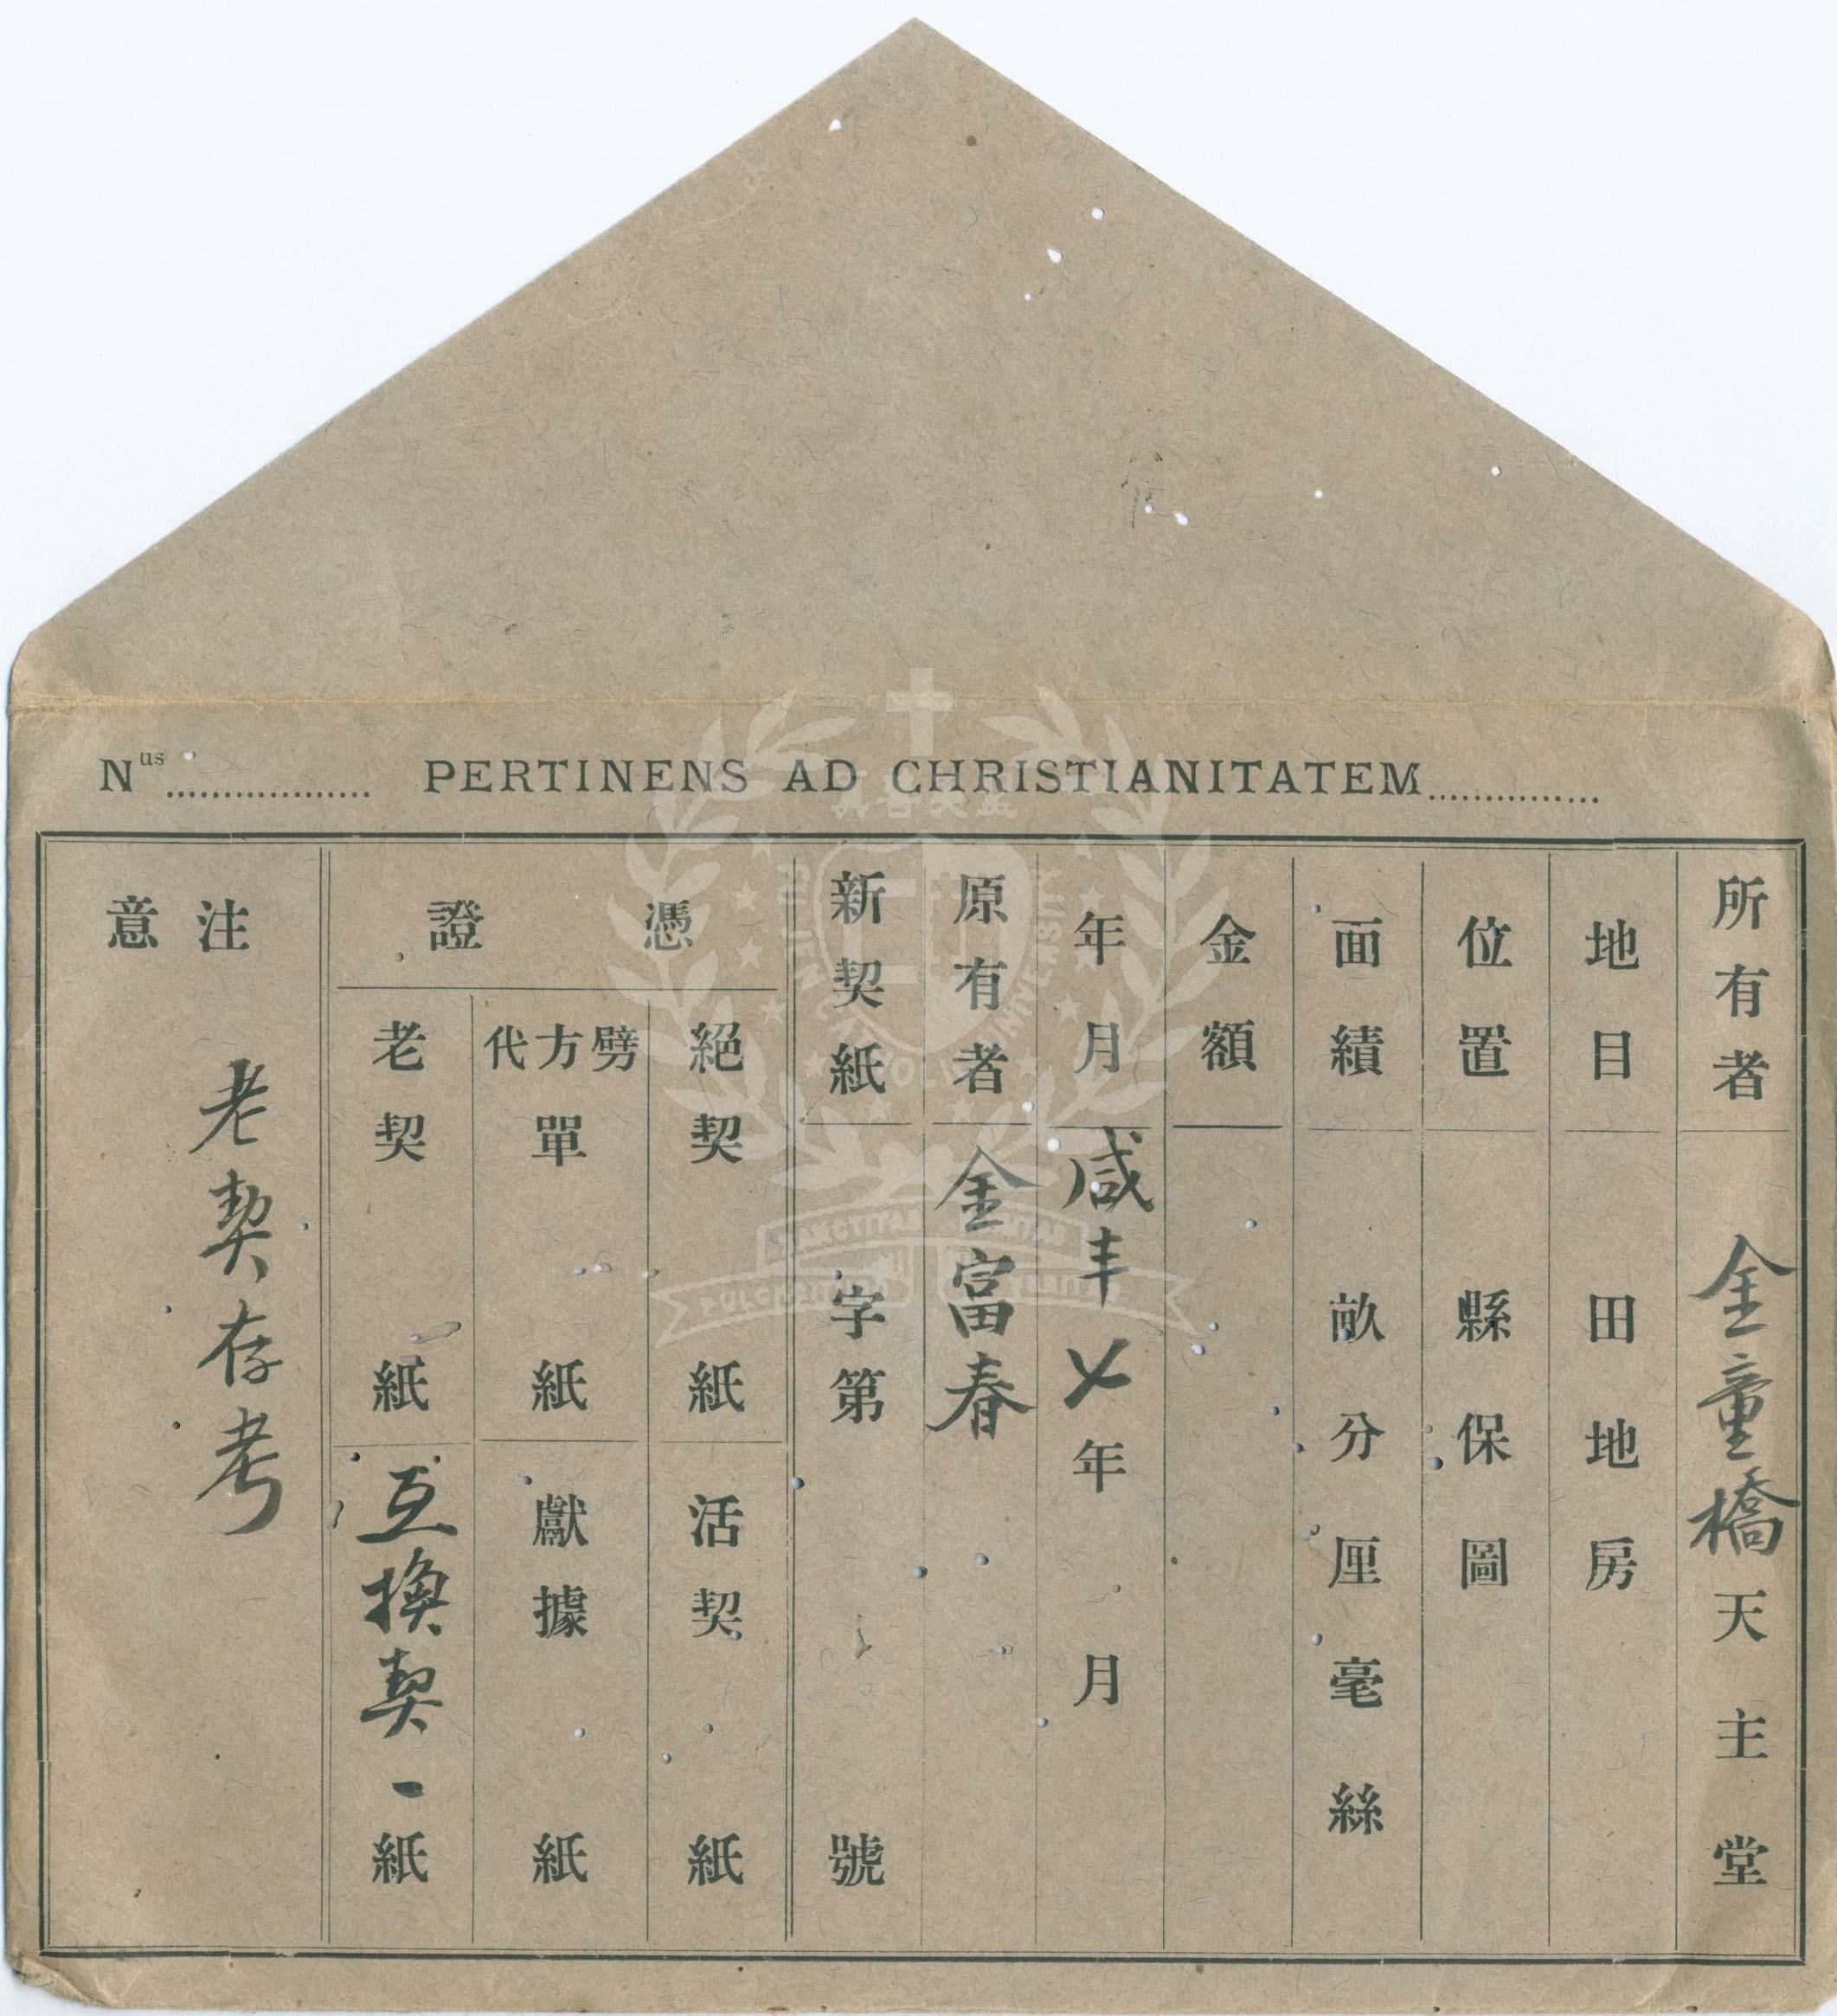 Nus.................. PERTINENS AD CHRISTIANITATEM...............
所有者 金童橋天主堂
地目 田地房
位置 縣保圖
面績 畝分厘毫絲
金額
年月 咸丰〤年 月
原有者 金富春
新契紙 字第 號
憑證
絕契 紙
活契 紙
劈方代單 紙
獻據 紙
老契 紙
互換契一紙
注意 老契存考